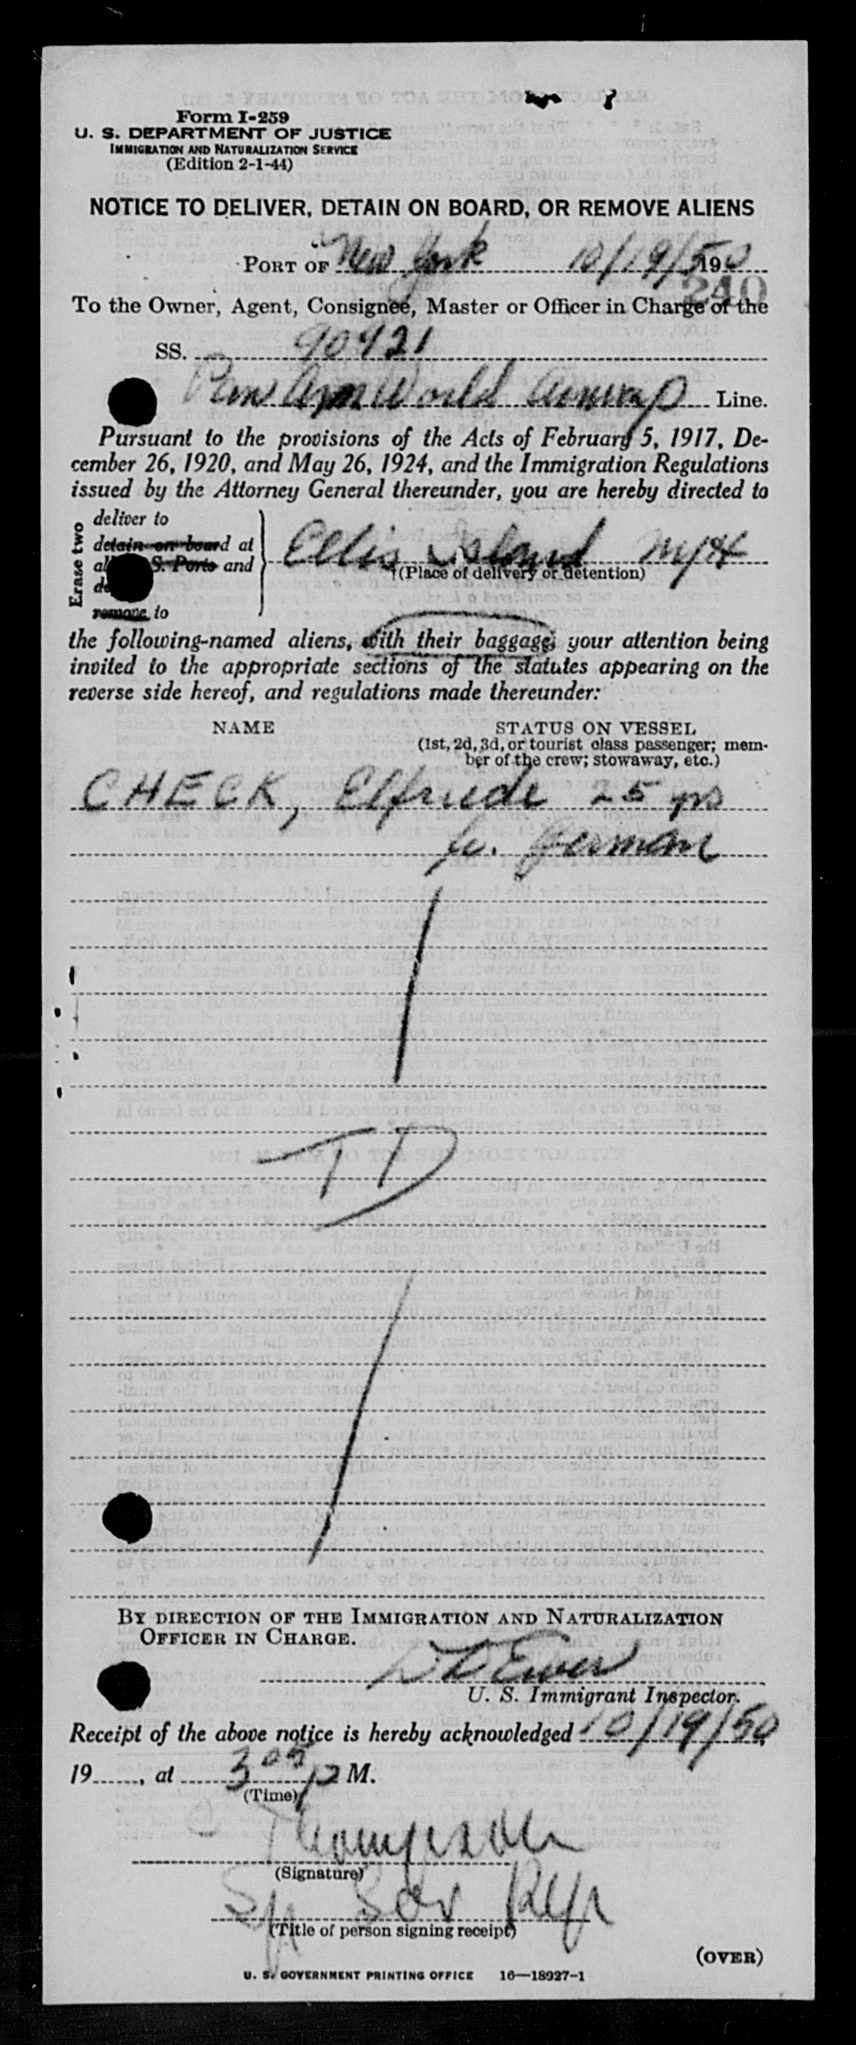 Form I-259
U. S. DEPARTMENT OF JUSTICE
IMMIGRATION AND NATURALIZATION SERVICE
(Edition 2-1-44)
NOTICE TO DELIVER, DETAIN ON BOARD, OR REMOVE ALIENS
PORT OF New York 10/19/50 19
240
To the Owner, Agent, Consignee, Master or Officer in Charge of the
SS. 90421
Pan Am World Airways Line.
Pursuant to the provisions of the Acts of February 5, 1917, De-
cember 26, 1920, and May 26, 1924, and the Immigration Regulations
issued by the Attorney General thereunder, you are hereby directed to
Erase two
deliver to
detain on board at
S. Ports and
remove to
Ellis Island NYH
(Place of delivery or detention)
the following-named aliens, with their baggage, your attention being
invited to the appropriate sections of the statutes appearing on the
reverse side hereof, and regulations made thereunder:
NAME STATUS ON VESSEL
(1st, 2d, 3d, or tourist class passenger; mem-
ber of the crew; stowaway, etc.)
CHECK, Elfriede 25 yrs
fe. German
TD
BY DIRECTION OF THE IMMIGRATION AND NATURALIZATION
OFFICER IN CHARGE.
U. S. Immigrant Inspector.
Receipt of the above notice is hereby acknowledged 10/19/50,
19......, at 3 05 P M.
(Time)
Thompson
(Signature)
Sp Ser Rep
(Title of person signing receipt)
(OVER)
U. S. GOVERNMENT PRINTING OFFICE 16—18927-1